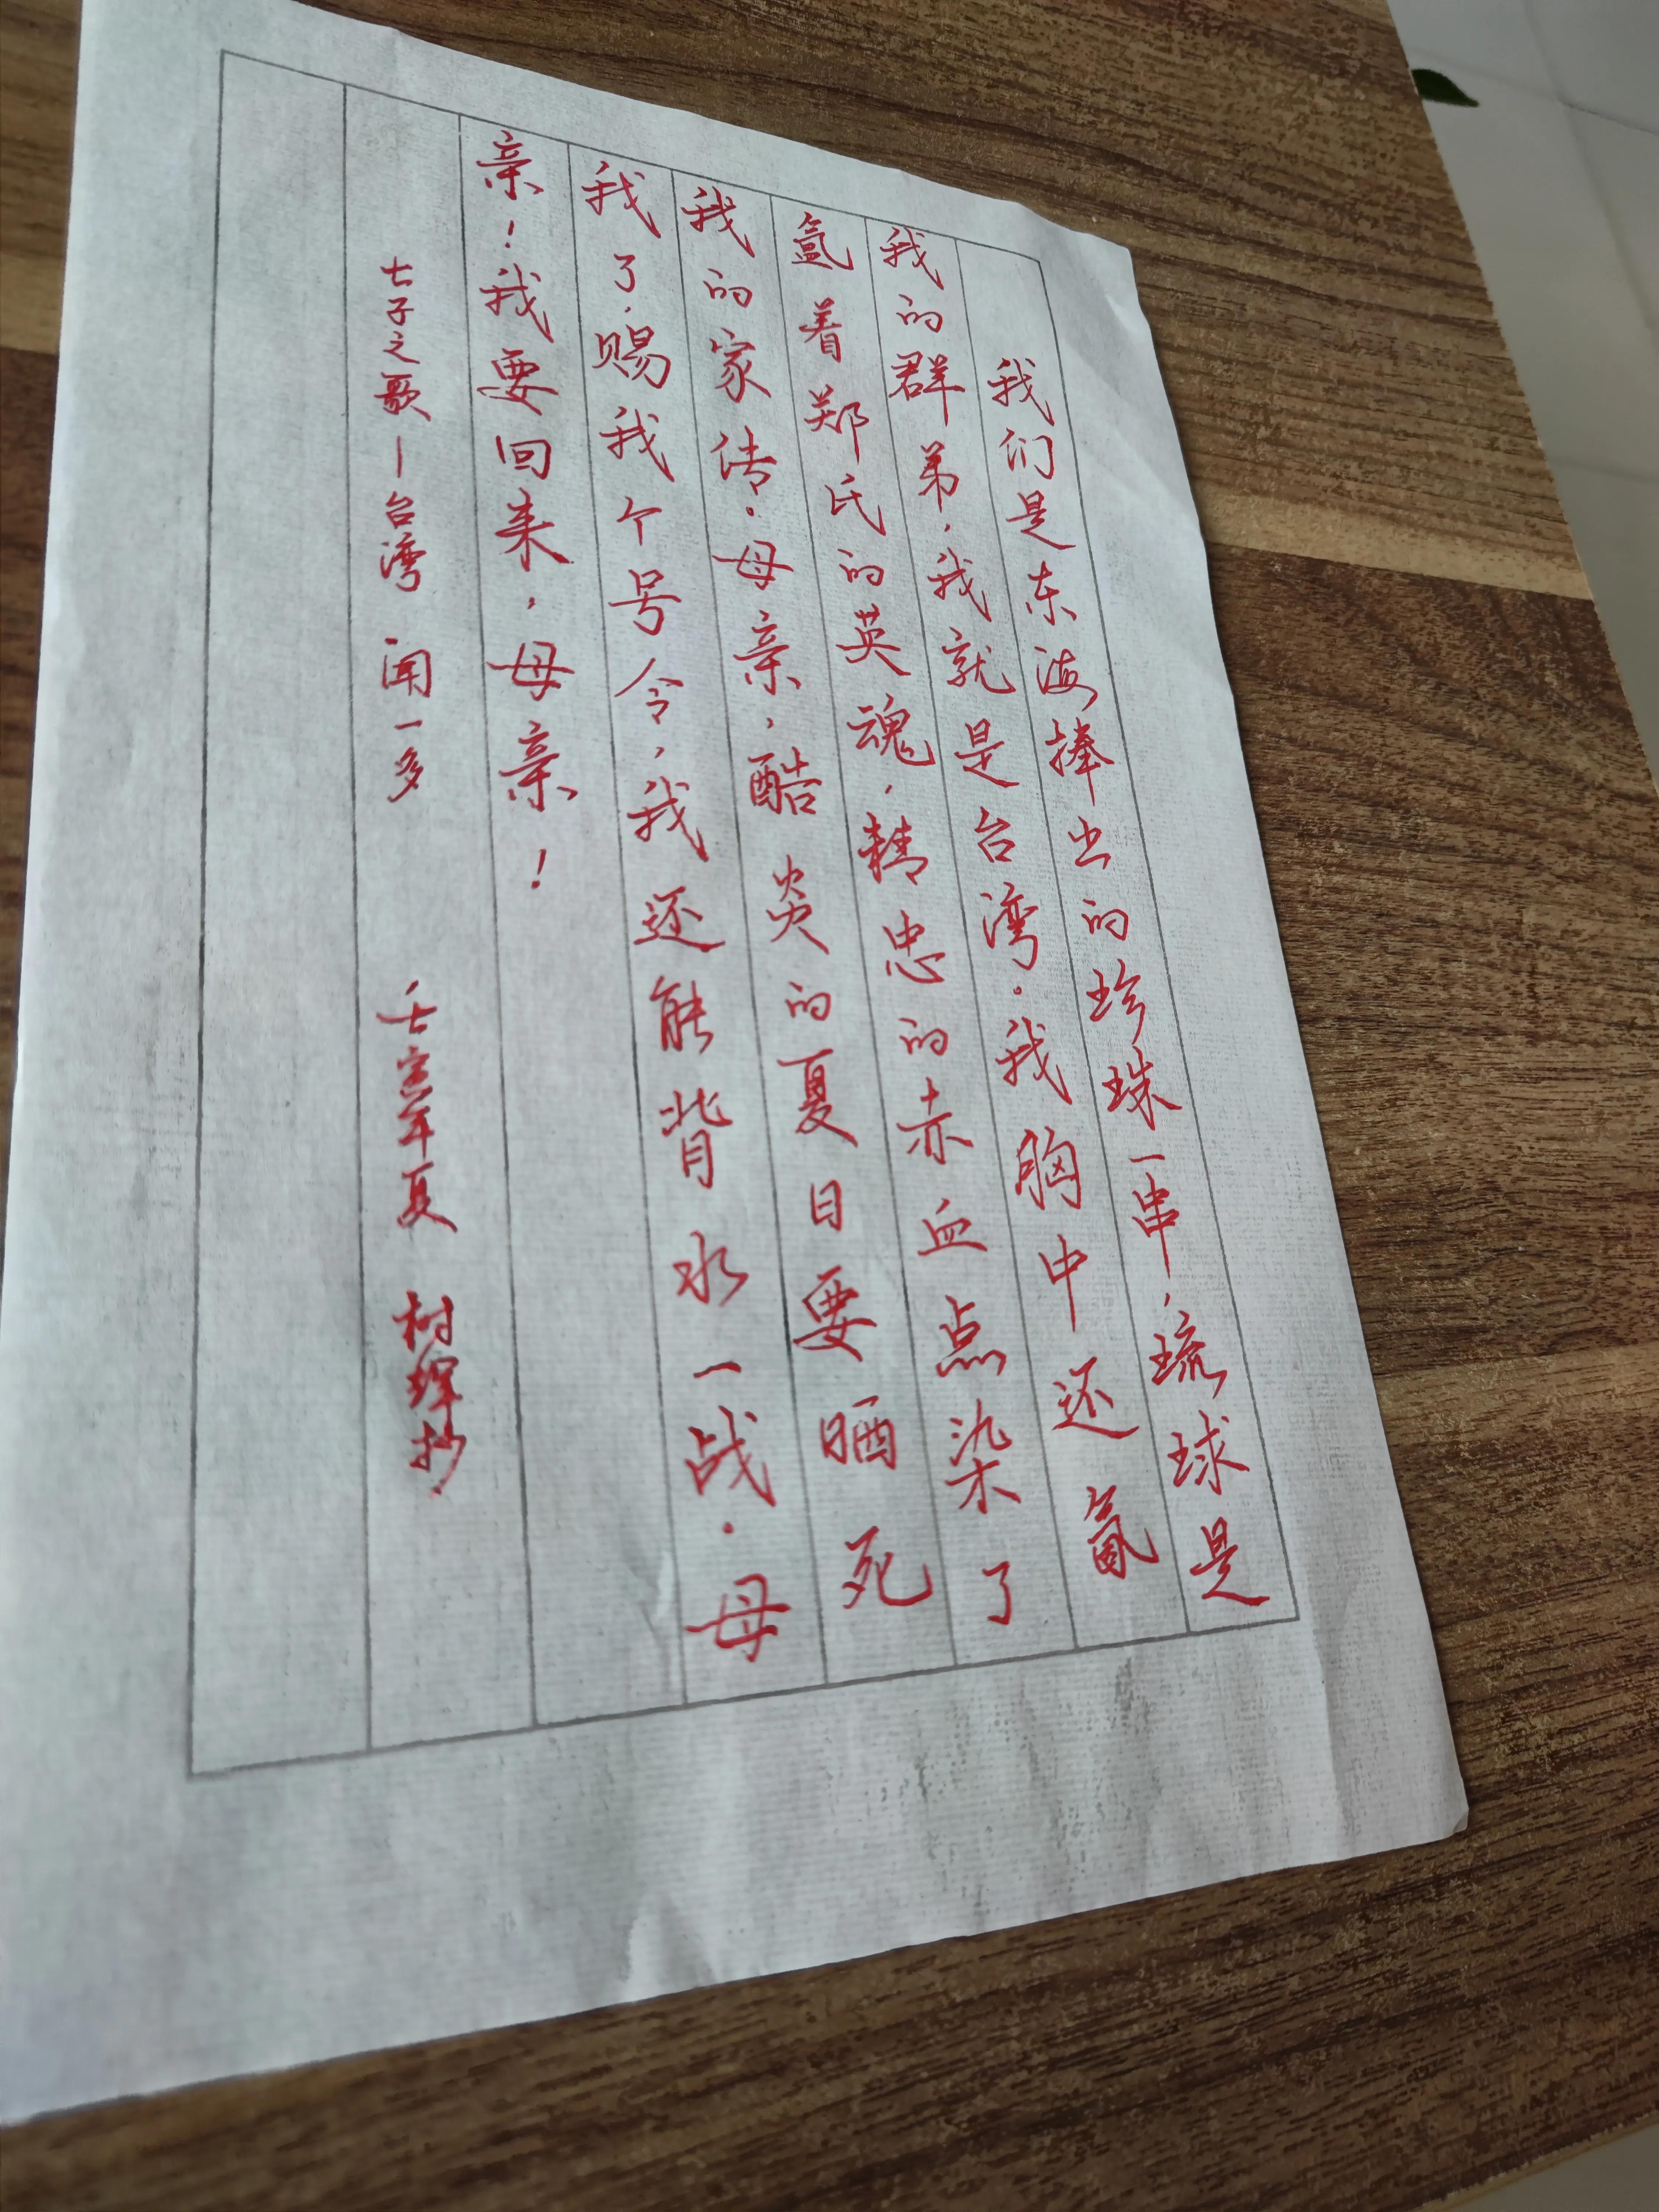 我们是东海捧出的珍珠一串，琉球是
我的群弟，我就是台湾。我胸中还氤
氲着郑氏的英魂，精忠的赤血点染了
我的家传。母亲，酷炎的夏日要晒死
我了，赐我个号令，我还能背水一战。母
亲！我要回来，母亲！
七子之歌—台湾 闻一多 壬寅年夏 树辉抄